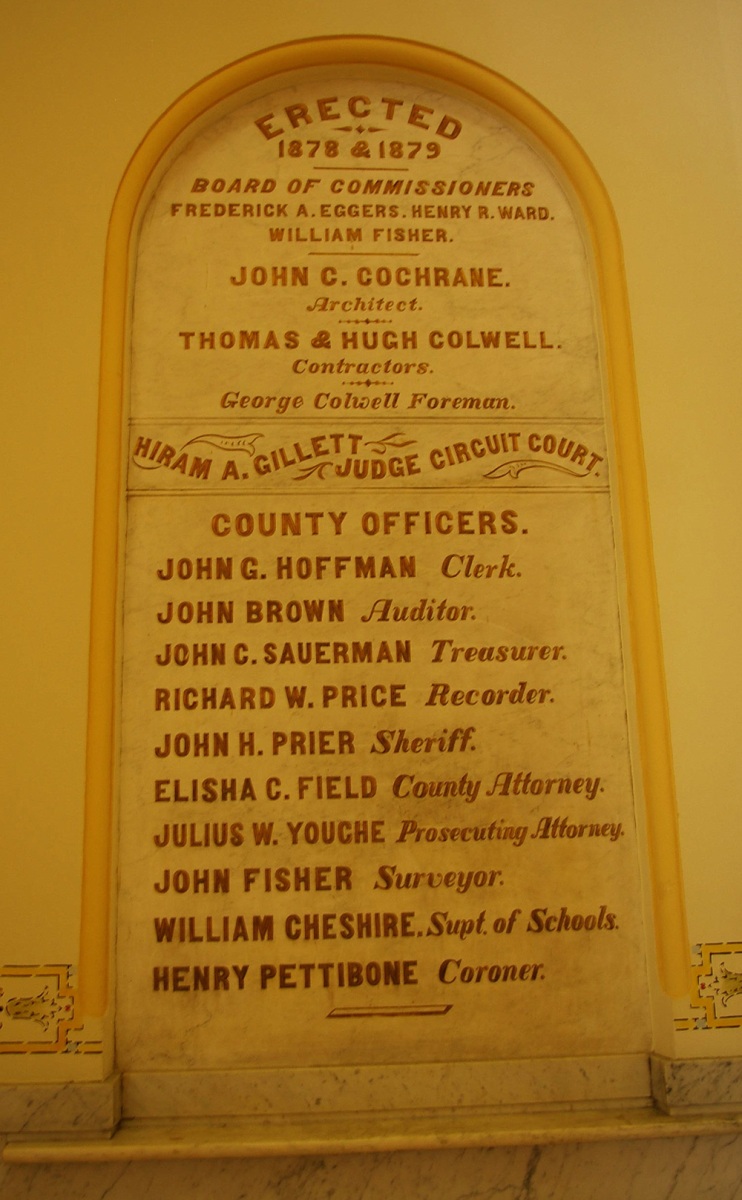 ERECTED
1878 & 1879
BOARD OF COMMISSIONERS
FREDERICK A. EGGERS. HENRY R. WARD.
WILLIAM FISHER.
JOHN C. COCHRANE.
Architect.
THOMAS & HUGH COLWELL.
Contractors.
George Colwell Foreman.
HIRAM A. GILLETT JUDGE CIRCUIT COURT.
COUNTY OFFICERS.
JOHN G. HOFFMAN Clerk.
JOHN BROWN Auditor.
JOHN C. SAUERMAN Treasurer.
RICHARD W. PRICE Recorder.
JOHN H. PRIER Sheriff.
ELISHA C. FIELD County Attorney.
JULIUS W. YOUCHE Prosecuting Attorney.
JOHN FISHER Surveyor.
WILLIAM CHESHIRE. Supt. of Schools.
HENRY PETTIBONE Coroner.